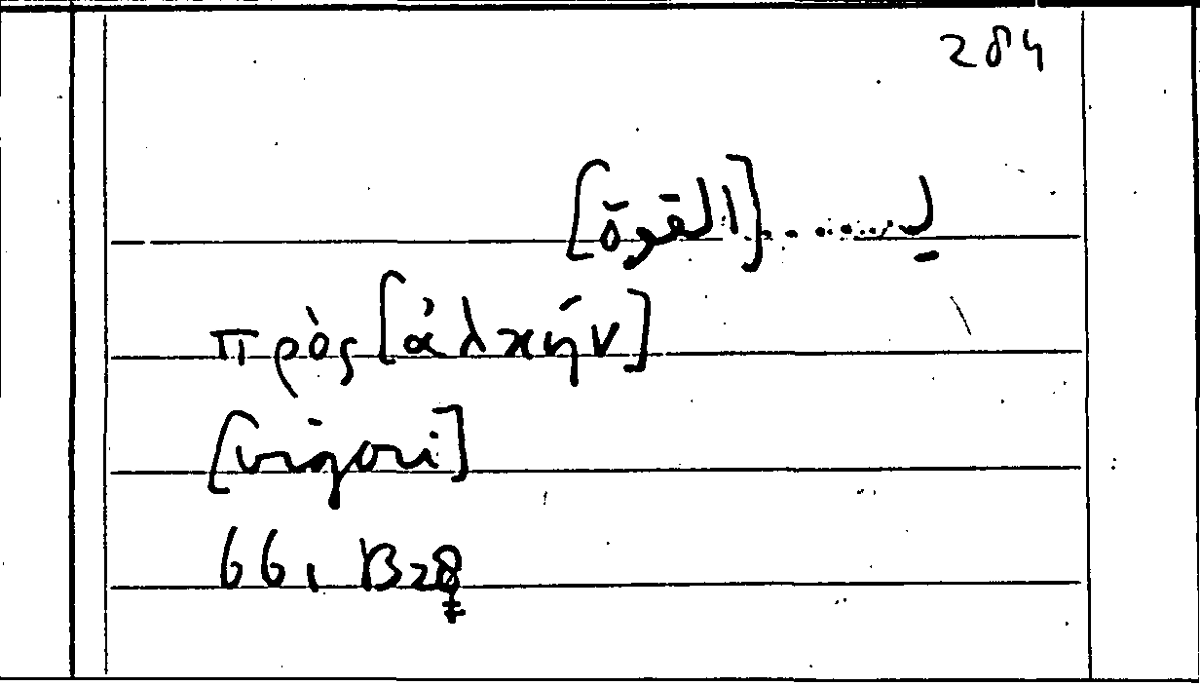 284
لـ........[القوة]
πρὸς [ἀλκήν]
[vigori]
661 B28